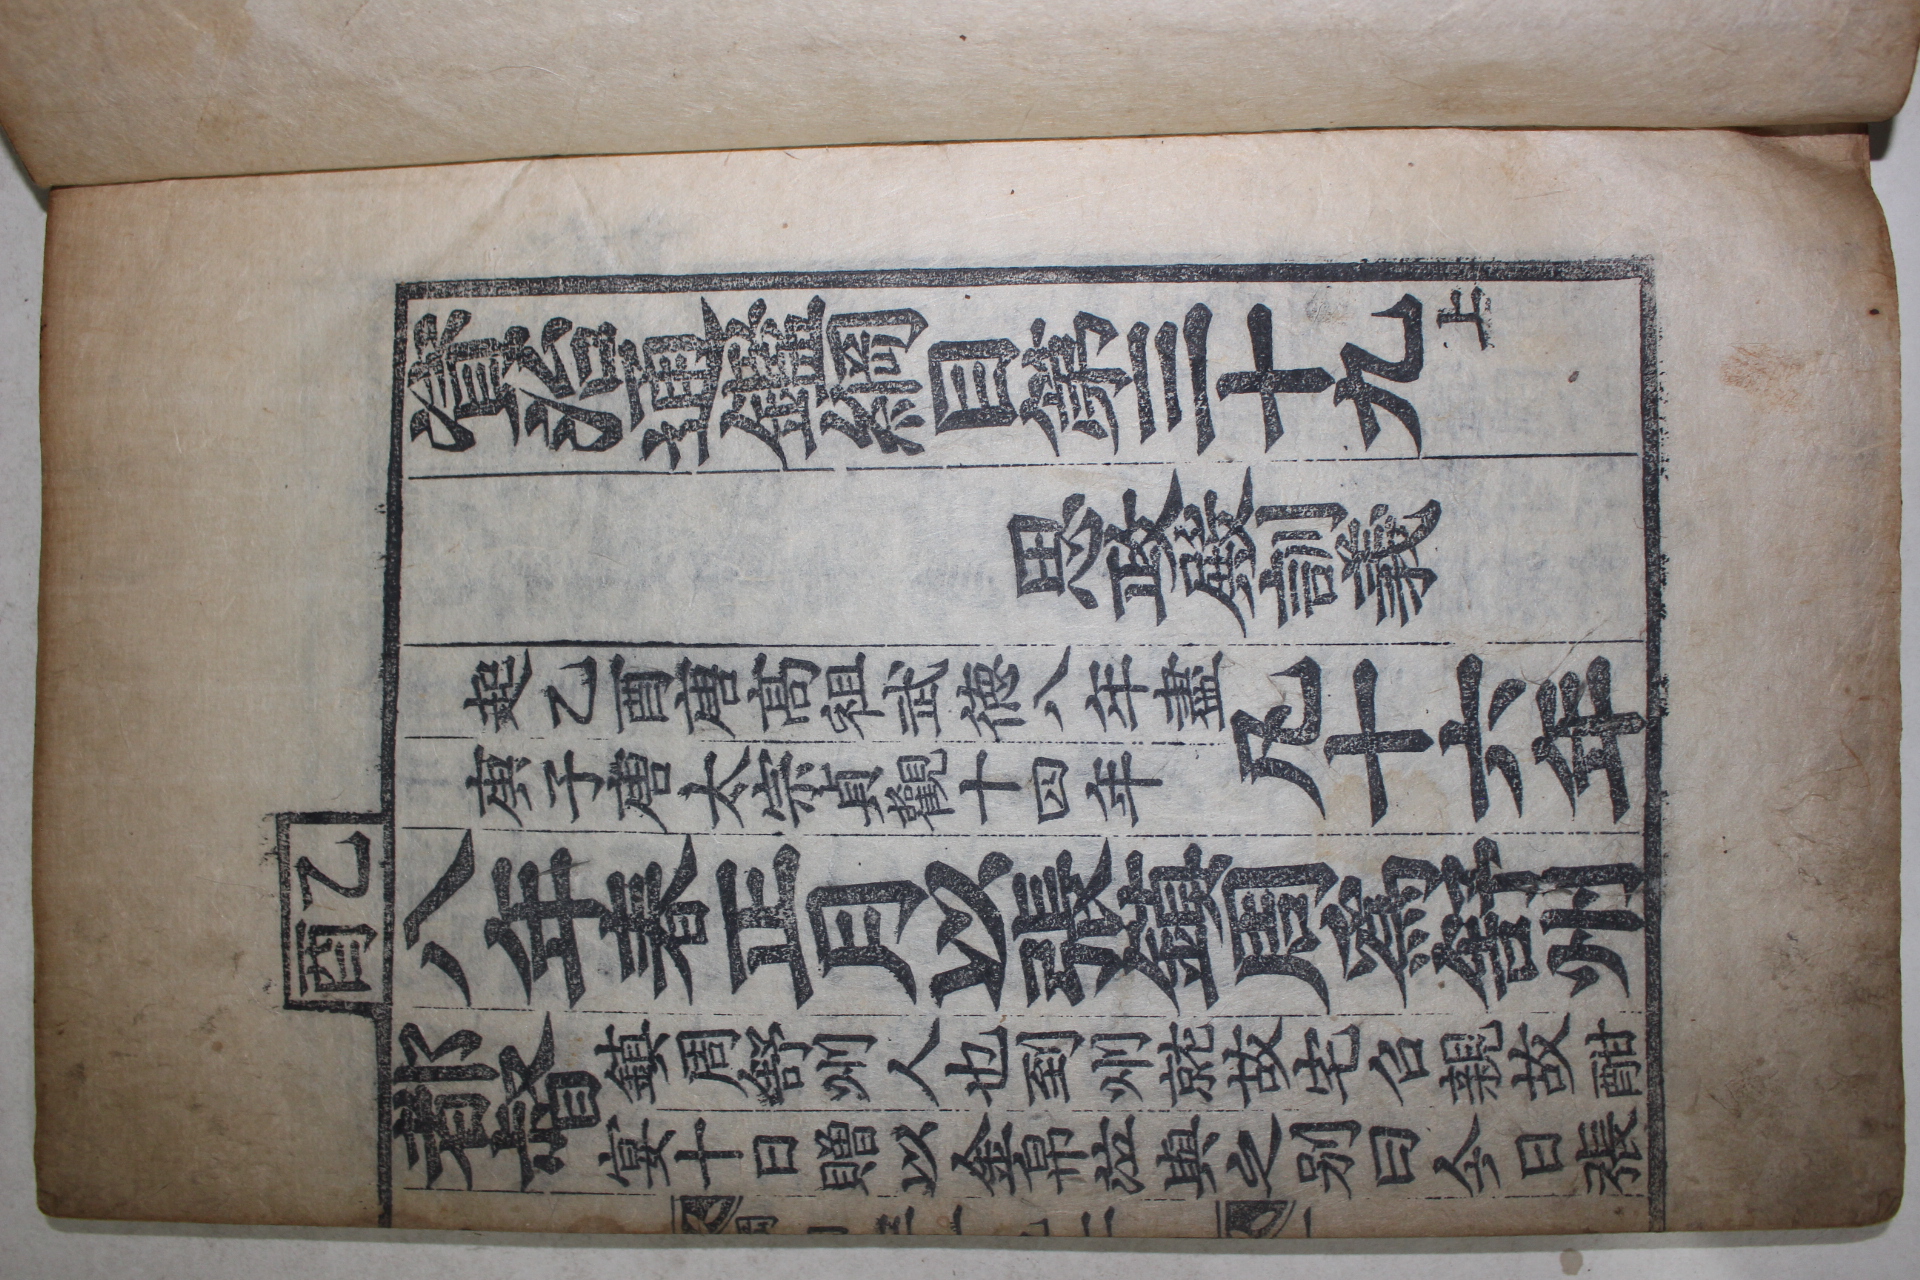 資治通鑑綱目第三十九上
思政殿訓義
起乙酉唐高祖武德八年盡
庚子唐太宗貞觀十四年
凡十六年
乙酉
八年春正月以張鎮周為舒州
都督
鎮周舒州人也到州就故宅召親故酣
宴十日贈以金帛泣與之別曰今日張